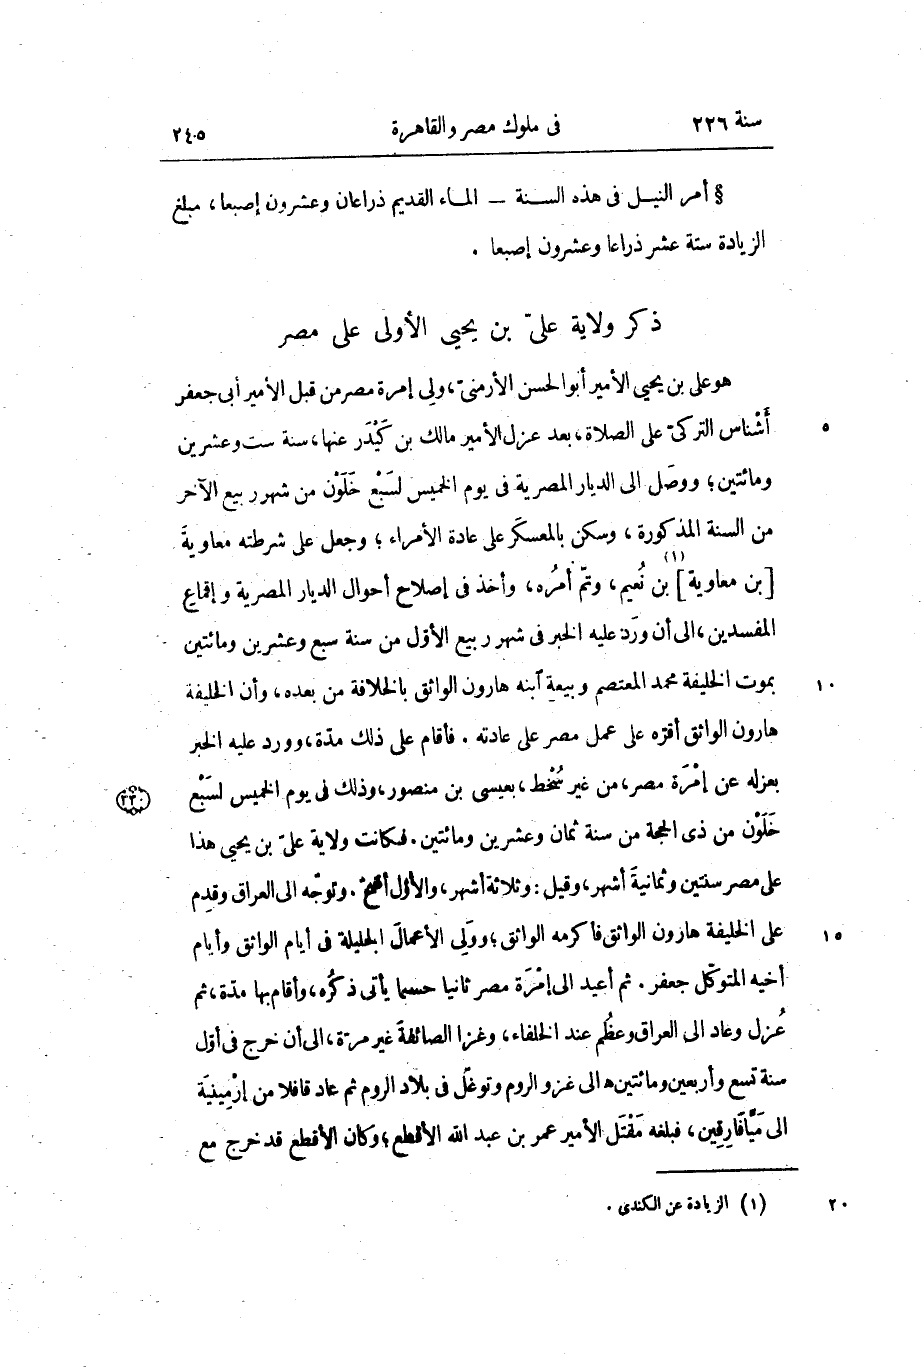 سنة ٢٢٦ فى ملوك مصر والقاهرة ٢٤٥
§ أمر النيـل فى هذه السـنة — المـاء القديم ذراعان وعشرون إصبعا، مبلغ
الزيادة ستة عشر ذراعا وعشرون إصبعا .
ذكر ولاية علىّ بن يحيى الأولى على مصر
هو على بن يحيى الأمير أبو الحسن الأرمنىّ، ولى إمرة مصر من قبل الأمير أبى جعفر
أَشْناس التركىّ على الصلاة، بعد عزل الأمير مالك بن كَيْدَر عنها، سنة ست وعشرين ٥
ومائتين؛ ووصَل الى الديار المصرية فى يوم الخميس لسَبْع خَلَوْن من شهر ربيع الآخر
من السنة المذكورة، وسكن بالمعسكَر على عادة الأمراء؛ وجعل على شرطته معاويةَ
[بن معاوية] (١) بن نُعيم، وتمّ أمرُه، وأخذ فى إصلاح أحوال الديار المصرية وإقماع
المفسدين، الى أن ورَد عليه الخبر فى شهر ربيع الأوّل من سنة سبع وعشرين ومائتين
بموت الخليفة محمد المعتصم وبيعة آبنه هارون الواثق بالخلافة من بعده، وأن الخليفة ١٠
هارون الواثق أقرّه على عمل مصر على عادته . فأقام على ذلك مدّة، وورد عليه الخبر
بعزله عن إمْرَة مصر، من غير سُخْط، بعيسى بن منصور، وذلك فى يوم الخميس لسَبْع ٢٣٠
خَلَوْن من ذى الحجة من سنة ثمان وعشرين ومائتين. فكانت ولاية علىّ بن يحيى هذا
على مصر سنتين وثمانيةَ أشهر، وقيل: وثلاثة أشهر، والأوّل أصحّ. وتوجّه الى العراق وقدِم
على الخليفة هارون الواثق فأكرمه الواثق؛ وولى الأعمالَ الجليلة فى أيام الواثق وأيام ١٥
أخيه المتوكّل جعفر. ثم أعيد الى إمْرَة مصر ثانيا حسبما يأتى ذكرُه، وأقام بها مدّة، ثم
عُزل وعاد الى العراق وعظُم عند الخلفاء، وغزا الصائفةَ غير مرّة، الى أن خرج فى أوّل
سنة تسع وأربعين ومائتين الى غزو الروم وتوغّل فى بلاد الروم ثم عاد قافلا من إرْمِينِيَة
الى مَيَّافَارِقِين، فبلغه مَقْتَل الأمير عمر بن عبد الله الأقطع؛ وكان الأقطع قد خرج مع
(١) الزيادة عن الكندى . ٢٠